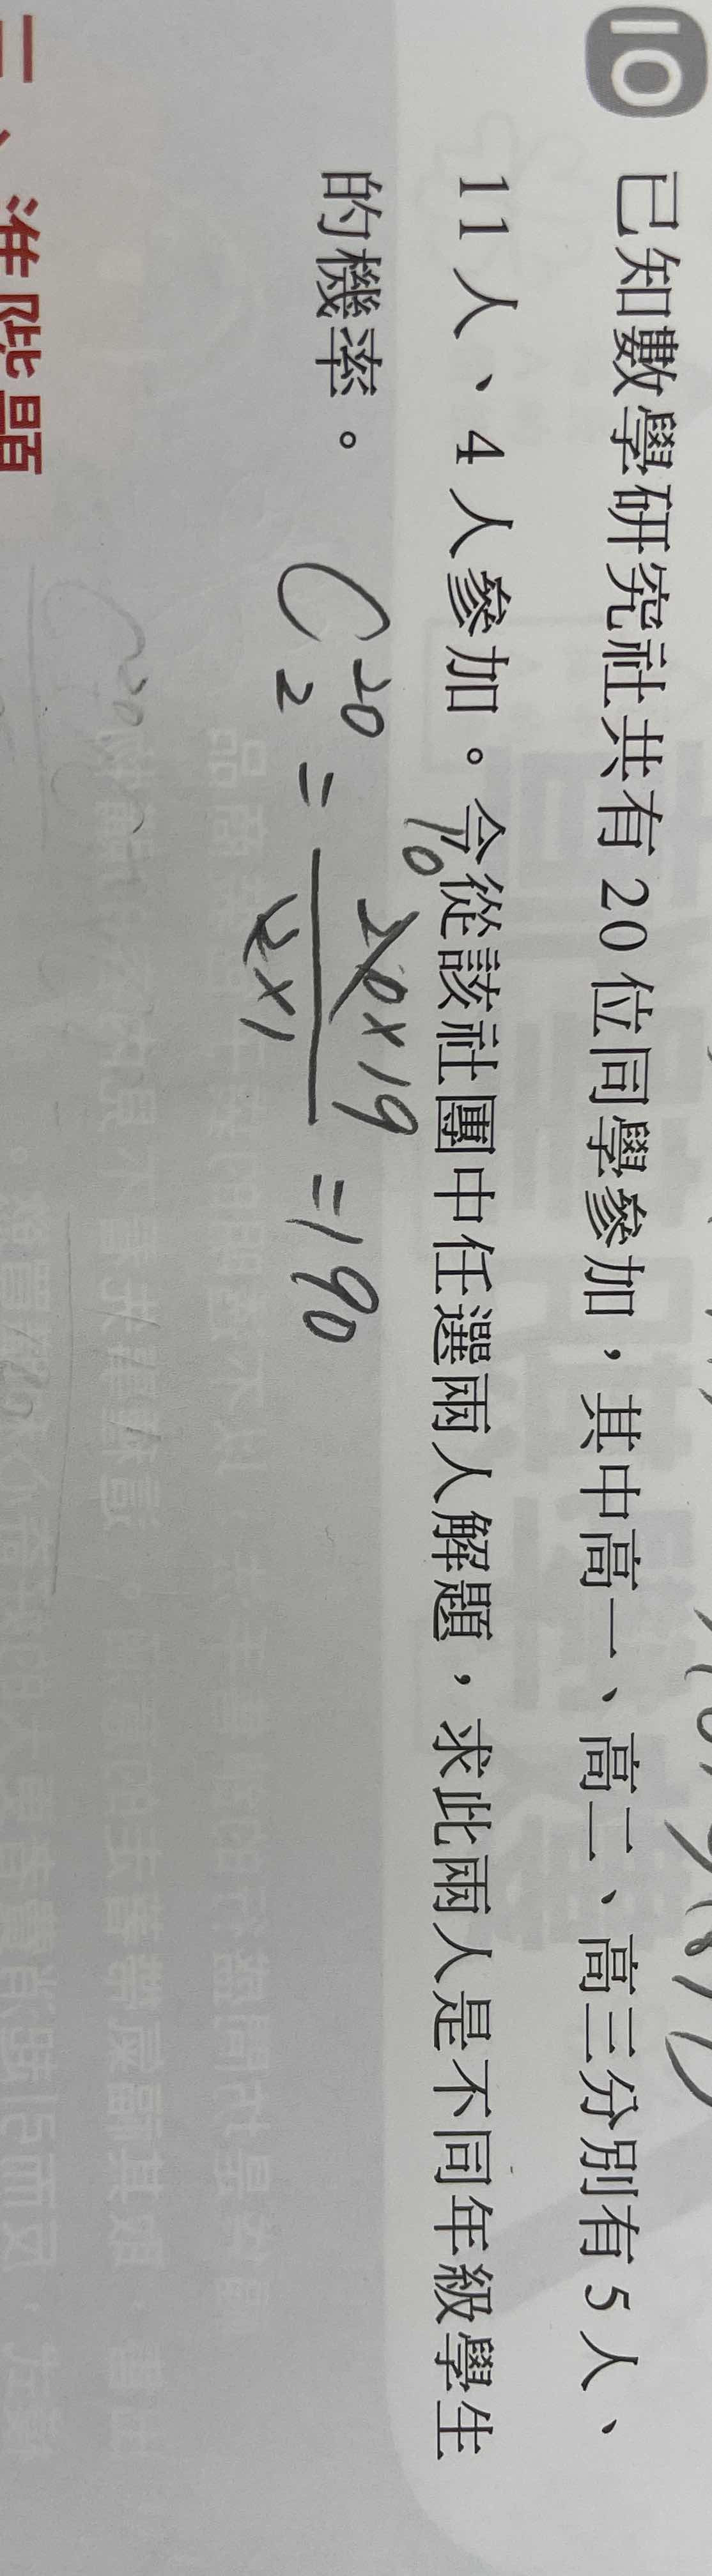 10 已知數學研究社共有 20 位同學參加，其中高一、高二、高三分別有 5 人、
11 人、4 人參加。今從該社團中任選兩人解題，求此兩人是不同年級學生
的機率。
C 20 2 = 20×19 / 2×1 = 190
10
二、進階題